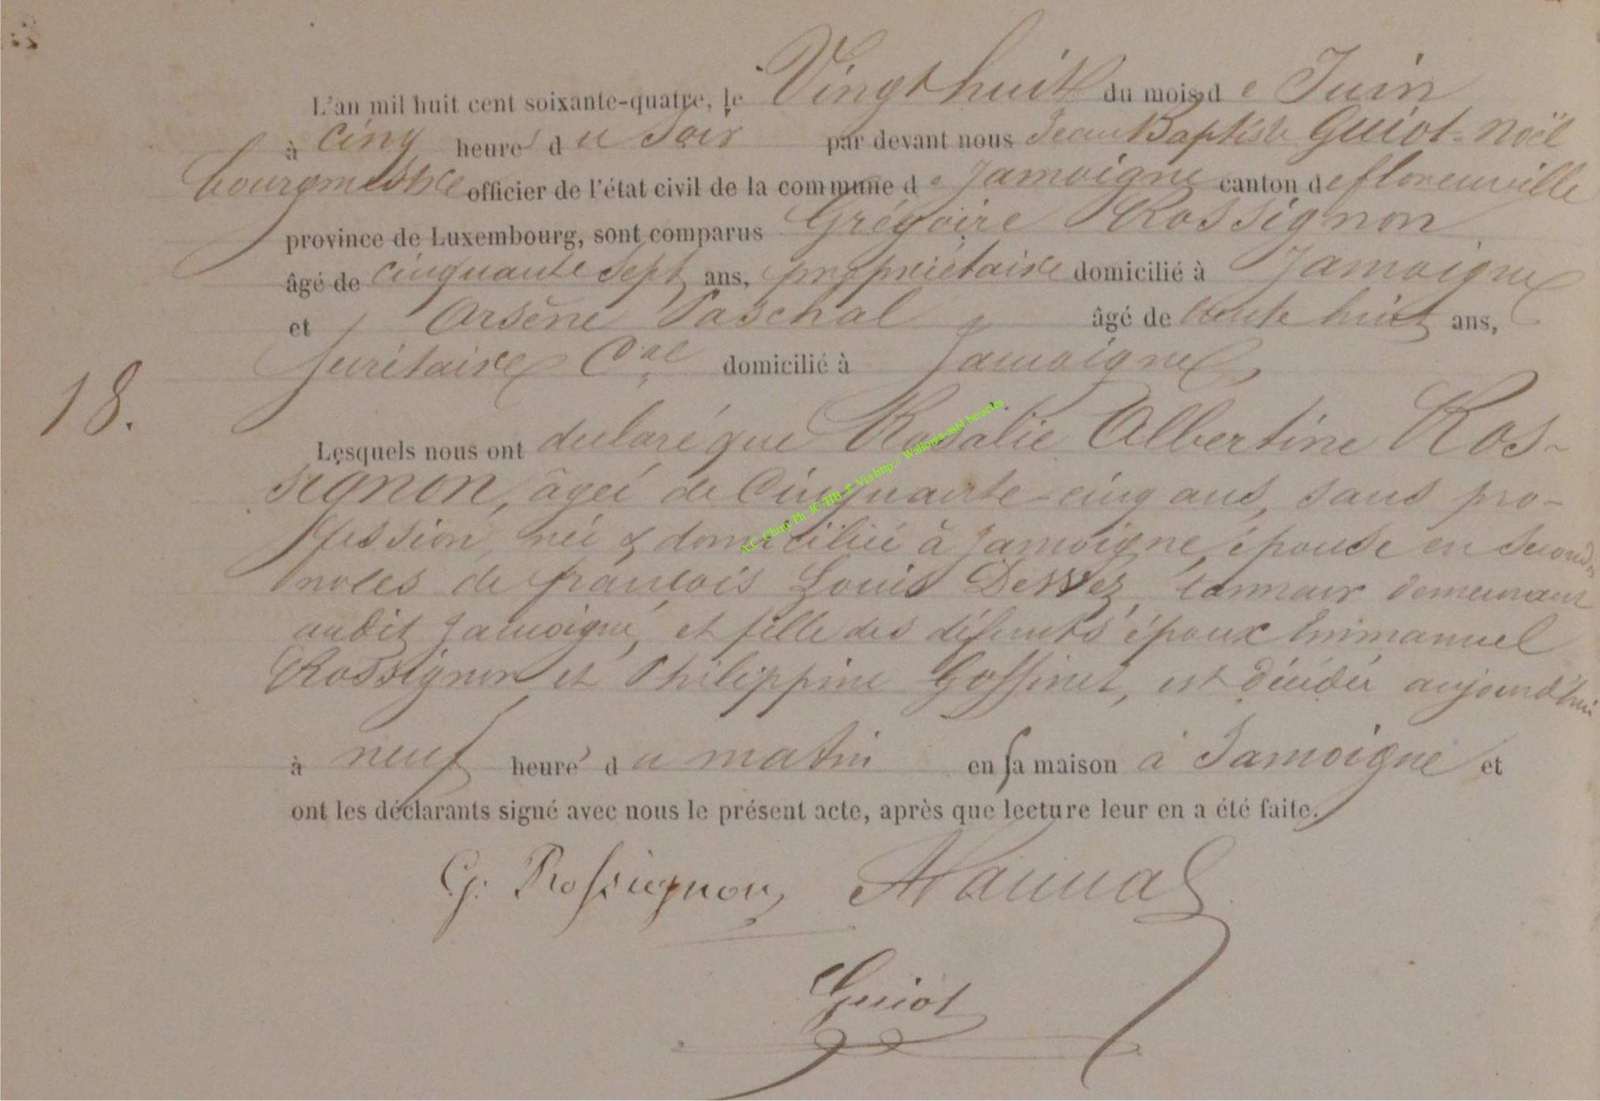 L'an mil huit cent soixante-quatre, le Vingt huit du mois de Juin
à cinq heures du soir par devant nous Jean Baptiste Guiot-Noël
bourgmestre officier de l'état civil de la commune de Jamoigne canton de florenville
province de Luxembourg, sont comparus Grégoire Rossignon
âgé de cinquante sept ans, propriétaire domicilié à Jamoigne
et Arsène Paschal âgé de trente huit ans,
secrétaire Cal domicilié à Jamoigne
18.
Lesquels nous ont déclaré que Rosalie Albertine Ros-
signon, âgée de Cinquante-cinq ans, sans pro-
fession, née & domiciliée à Jamoigne, épouse en secondes
noces de françois Louis Dessez, tanneur demeurant
audit Jamoigne, et fille des défunts époux Emmanuel
Rossignon et Philippine Goffinet, est décédée aujourd'hui
à neuf heures du matin en sa maison à Jamoigne et
ont les déclarants signé avec nous le présent acte, après que lecture leur en a été faite.
G. Rossignon
Guiot